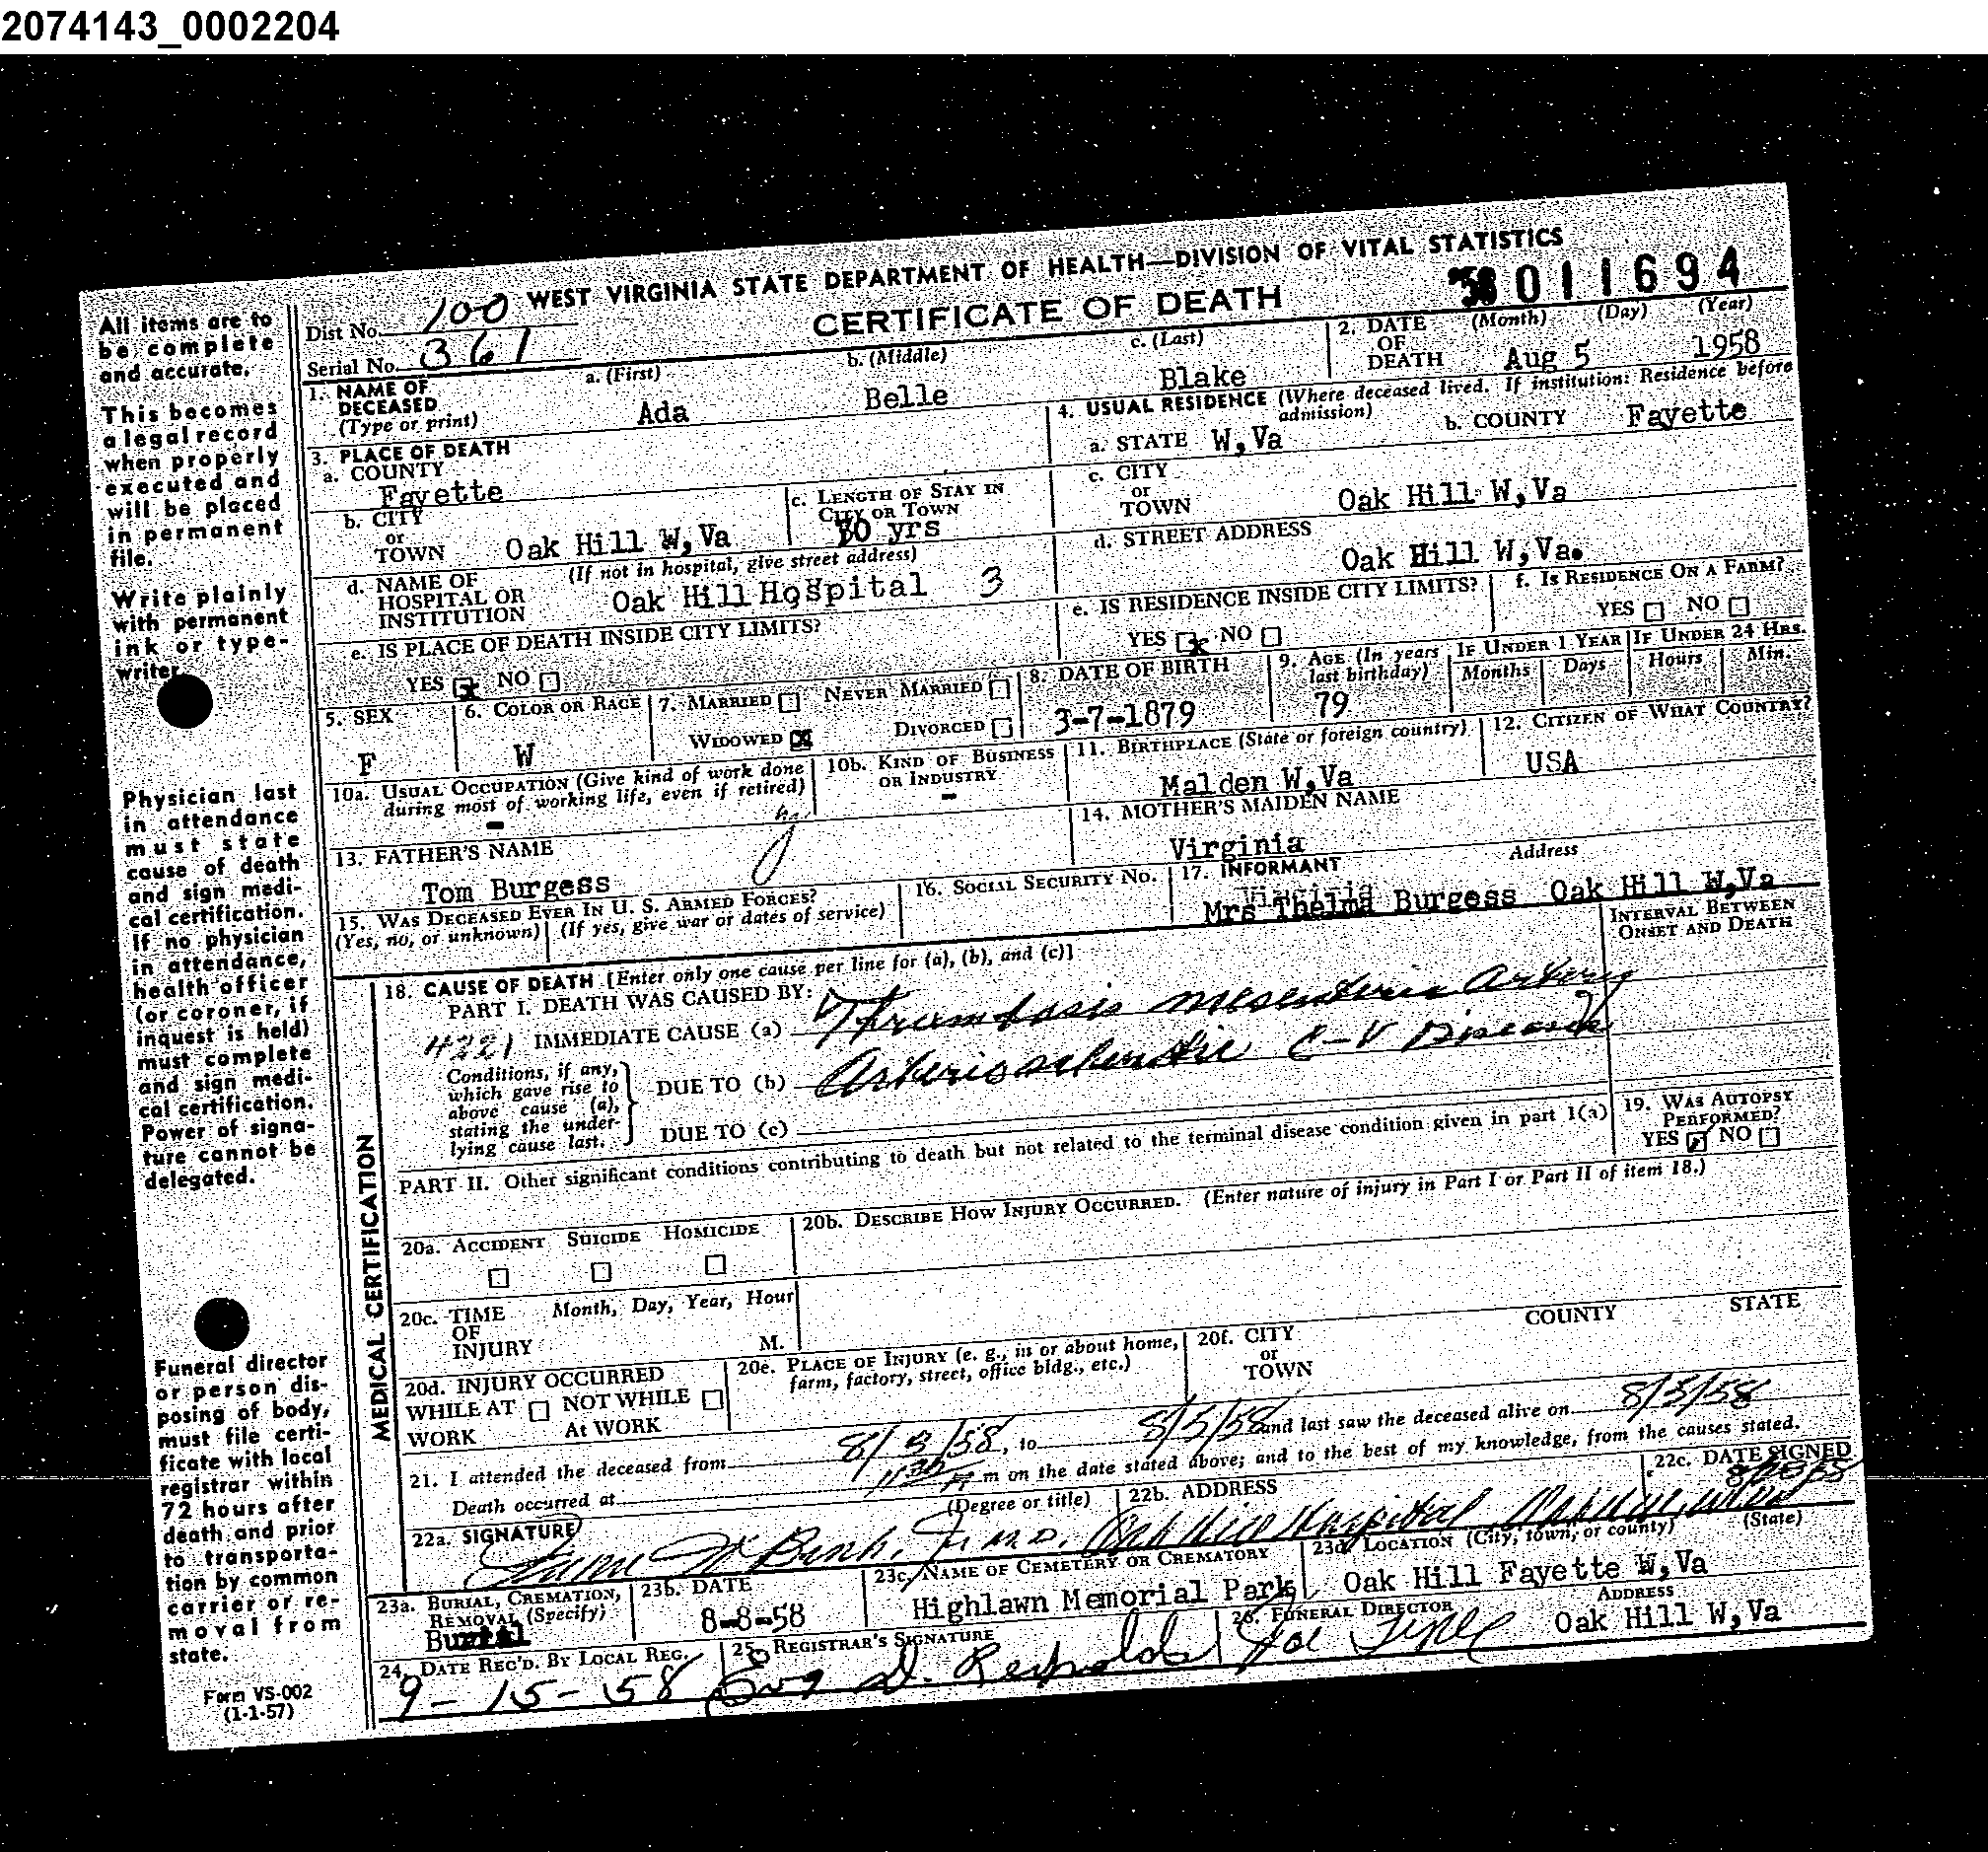 2074143_0002204
WEST VIRGINIA STATE DEPARTMENT OF HEALTH—DIVISION OF VITAL STATISTICS
CERTIFICATE OF DEATH
58 011694
Dist No. 100
Serial No. 361
All items are to
be complete
and accurate.
This becomes
a legal record
when properly
executed and
will be placed
in permanent
file.
Write plainly
with permanent
ink or type-
writer
Physician last
in attendance
must state
cause of death
and sign medi-
cal certification.
If no physician
in attendance,
health officer
(or coroner, if
inquest is held)
must complete
and sign medi-
cal certification.
Power of signa-
ture cannot be
delegated.
Funeral director
or person dis-
posing of body,
must file certi-
ficate with local
registrar within
72 hours after
death and prior
to transporta-
tion by common
carrier or re-
moval from
state.
Form VS-002
(1-1-57)
1. NAME OF DECEASED (Type or print)
a. (First) Ada
b. (Middle) Belle
c. (Last) Blake
2. DATE OF DEATH (Month) (Day) (Year)
Aug 5 1958
3. PLACE OF DEATH
a. COUNTY Fayette
b. CITY or TOWN Oak Hill W,Va
c. LENGTH OF STAY IN CITY OR TOWN 50 yrs
d. NAME OF HOSPITAL OR INSTITUTION (If not in hospital, give street address)
Oak Hill Hospital 3
e. IS PLACE OF DEATH INSIDE CITY LIMITS?
YES x NO
4. USUAL RESIDENCE (Where deceased lived. If institution: Residence before admission)
a. STATE W,Va
b. COUNTY Fayette
c. CITY or TOWN Oak Hill W,Va
d. STREET ADDRESS
Oak Hill W,Va.
e. IS RESIDENCE INSIDE CITY LIMITS?
YES x NO
f. IS RESIDENCE ON A FARM?
YES NO
5. SEX
F
6. COLOR OR RACE
W
7. MARRIED NEVER MARRIED
WIDOWED X DIVORCED
8. DATE OF BIRTH
3-7-1879
9. AGE (In years last birthday)
79
IF UNDER 1 YEAR Months Days
IF UNDER 24 HRS. Hours Min.
10a. USUAL OCCUPATION (Give kind of work done during most of working life, even if retired)
-
10b. KIND OF BUSINESS OR INDUSTRY
-
11. BIRTHPLACE (State or foreign country)
Malden W,Va
12. CITIZEN OF WHAT COUNTRY?
USA
13. FATHER'S NAME
Tom Burgess
14. MOTHER'S MAIDEN NAME
Virginia
15. WAS DECEASED EVER IN U. S. ARMED FORCES?
(Yes, no, or unknown) (If yes, give war or dates of service)
16. SOCIAL SECURITY NO.
17. INFORMANT Address
Mrs Thelma Burgess Oak Hill W,Va
MEDICAL CERTIFICATION
18. CAUSE OF DEATH [Enter only one cause per line for (a), (b), and (c)]
INTERVAL BETWEEN ONSET AND DEATH
PART I. DEATH WAS CAUSED BY:
4221 IMMEDIATE CAUSE (a) Thrombosis mesenteric artery
Conditions, if any, which gave rise to above cause (a), stating the under- lying cause last.
DUE TO (b) Arteriosclerotic C-V Disease
DUE TO (c)
PART II. Other significant conditions contributing to death but not related to the terminal disease condition given in part I(a)
19. WAS AUTOPSY PERFORMED?
YES NO
20a. ACCIDENT SUICIDE HOMICIDE
20b. DESCRIBE HOW INJURY OCCURRED. (Enter nature of injury in Part I or Part II of item 18.)
20c. TIME OF INJURY Month, Day, Year, Hour
M.
20d. INJURY OCCURRED
WHILE AT WORK NOT WHILE At WORK
20e. PLACE OF INJURY (e. g., in or about home, farm, factory, street, office bldg., etc.)
20f. CITY or TOWN COUNTY STATE
21. I attended the deceased from 8/3/58, to 8/5/58 and last saw the deceased alive on 8/5/58
Death occurred at 11 30 m on the date stated above; and to the best of my knowledge, from the causes stated.
22a. SIGNATURE (Degree or title)
Jr. M.D.
22b. ADDRESS
Oak Hill Hospital, Oak Hill, W.Va
22c. DATE SIGNED
23a. BURIAL, CREMATION, REMOVAL (Specify)
Burial
23b. DATE
8-8-58
23c. NAME OF CEMETERY OR CREMATORY
Highlawn Memorial Park
23d. LOCATION (City, town, or county) (State)
Oak Hill Fayette W,Va
24. DATE REC'D. BY LOCAL REG.
9-15-58
25. REGISTRAR'S SIGNATURE
D. Reynolds
26. FUNERAL DIRECTOR ADDRESS
Joe Oak Hill W,Va